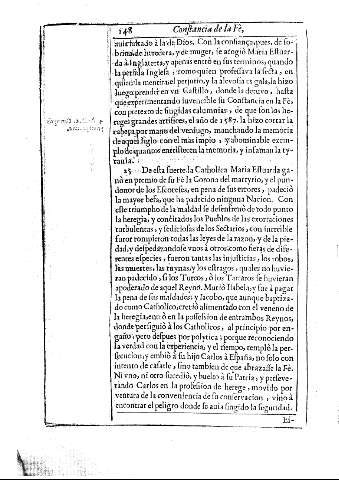 148 Constancia de la Fè,
auia faltado à la de Dios. Con la confiança, pues, de so-
brina de heredera, y de muger, se acogiò Maria Estuarda
à Inglaterra, y apenas entrò en sus terminos, quando
la perfida Inglesa, como quien professava la secta, en
quien es meritorio el perjurio, y la alevosia es gala, la hizo
luego prender en vn Castillo, donde la detuvo, hasta
que experimentando invencible su Constancia en la Fè,
con pretexto de fingidas calumnias, de que son los he-
reges grandes artifices, el año de 1587. la hizo cortar la
cabeça por mano del verdugo, manchando la memoria
de aquel siglo con el mas impio, y abominable exem-
plo de quantos entristecen la memoria, y infaman la ty-
rania.
25 De esta suerte la Catholica Maria Estuarda ga-
nò en premio de su Fè la Corona del martyrio, y el pun-
donor de los Escoceses, en pena de sus errores, padeciò
la mayor befa, que ha padecido ninguna Nacion. Con
este triumpho de la maldad se desenfrenò de todo punto
la heregia, y concitados los Pueblos de las exortaciones
turbulentas, y sediciosas de los Sectarios, con increible
furor rompieron todas las leyes de la razon, y de la pie-
dad, y despedaçandose vnos à otros como fieras de dife-
rentes especies, fueron tantas las injusticias, los robos,
las muertes, las ruynas, y los estragos, quales no huvie-
ran padecido, si los Turcos, ò los Tartaros se huvieran
apoderado de aquel Reyno. Muriò Isabela, y fue à pagar
la pena de sus maldades; y Jacobo, que aunque baptiza-
do como Catholico, creciò alimentado con el veneno de
la heregia, entrò en la possession de entrambos Reynos,
donde persiguiò à los Catholicos, al principio por en-
gaño; pero despues por polytica; porque reconociendo
la verdad con la experiencia, y el tiempo, templò la per-
secucion, y embiò à su hijo Carlos à España, no solo con
intento de casarle, sino tambien de que abrazasse la Fè.
Ni vno, ni otro sucediò, y buelto à su Patria, y perseve-
rando Carlos en la profession de herege, movido por
ventura de la conveniencia de su conservacion, vino à
encontrar el peligro donde se avia fingido la seguridad.